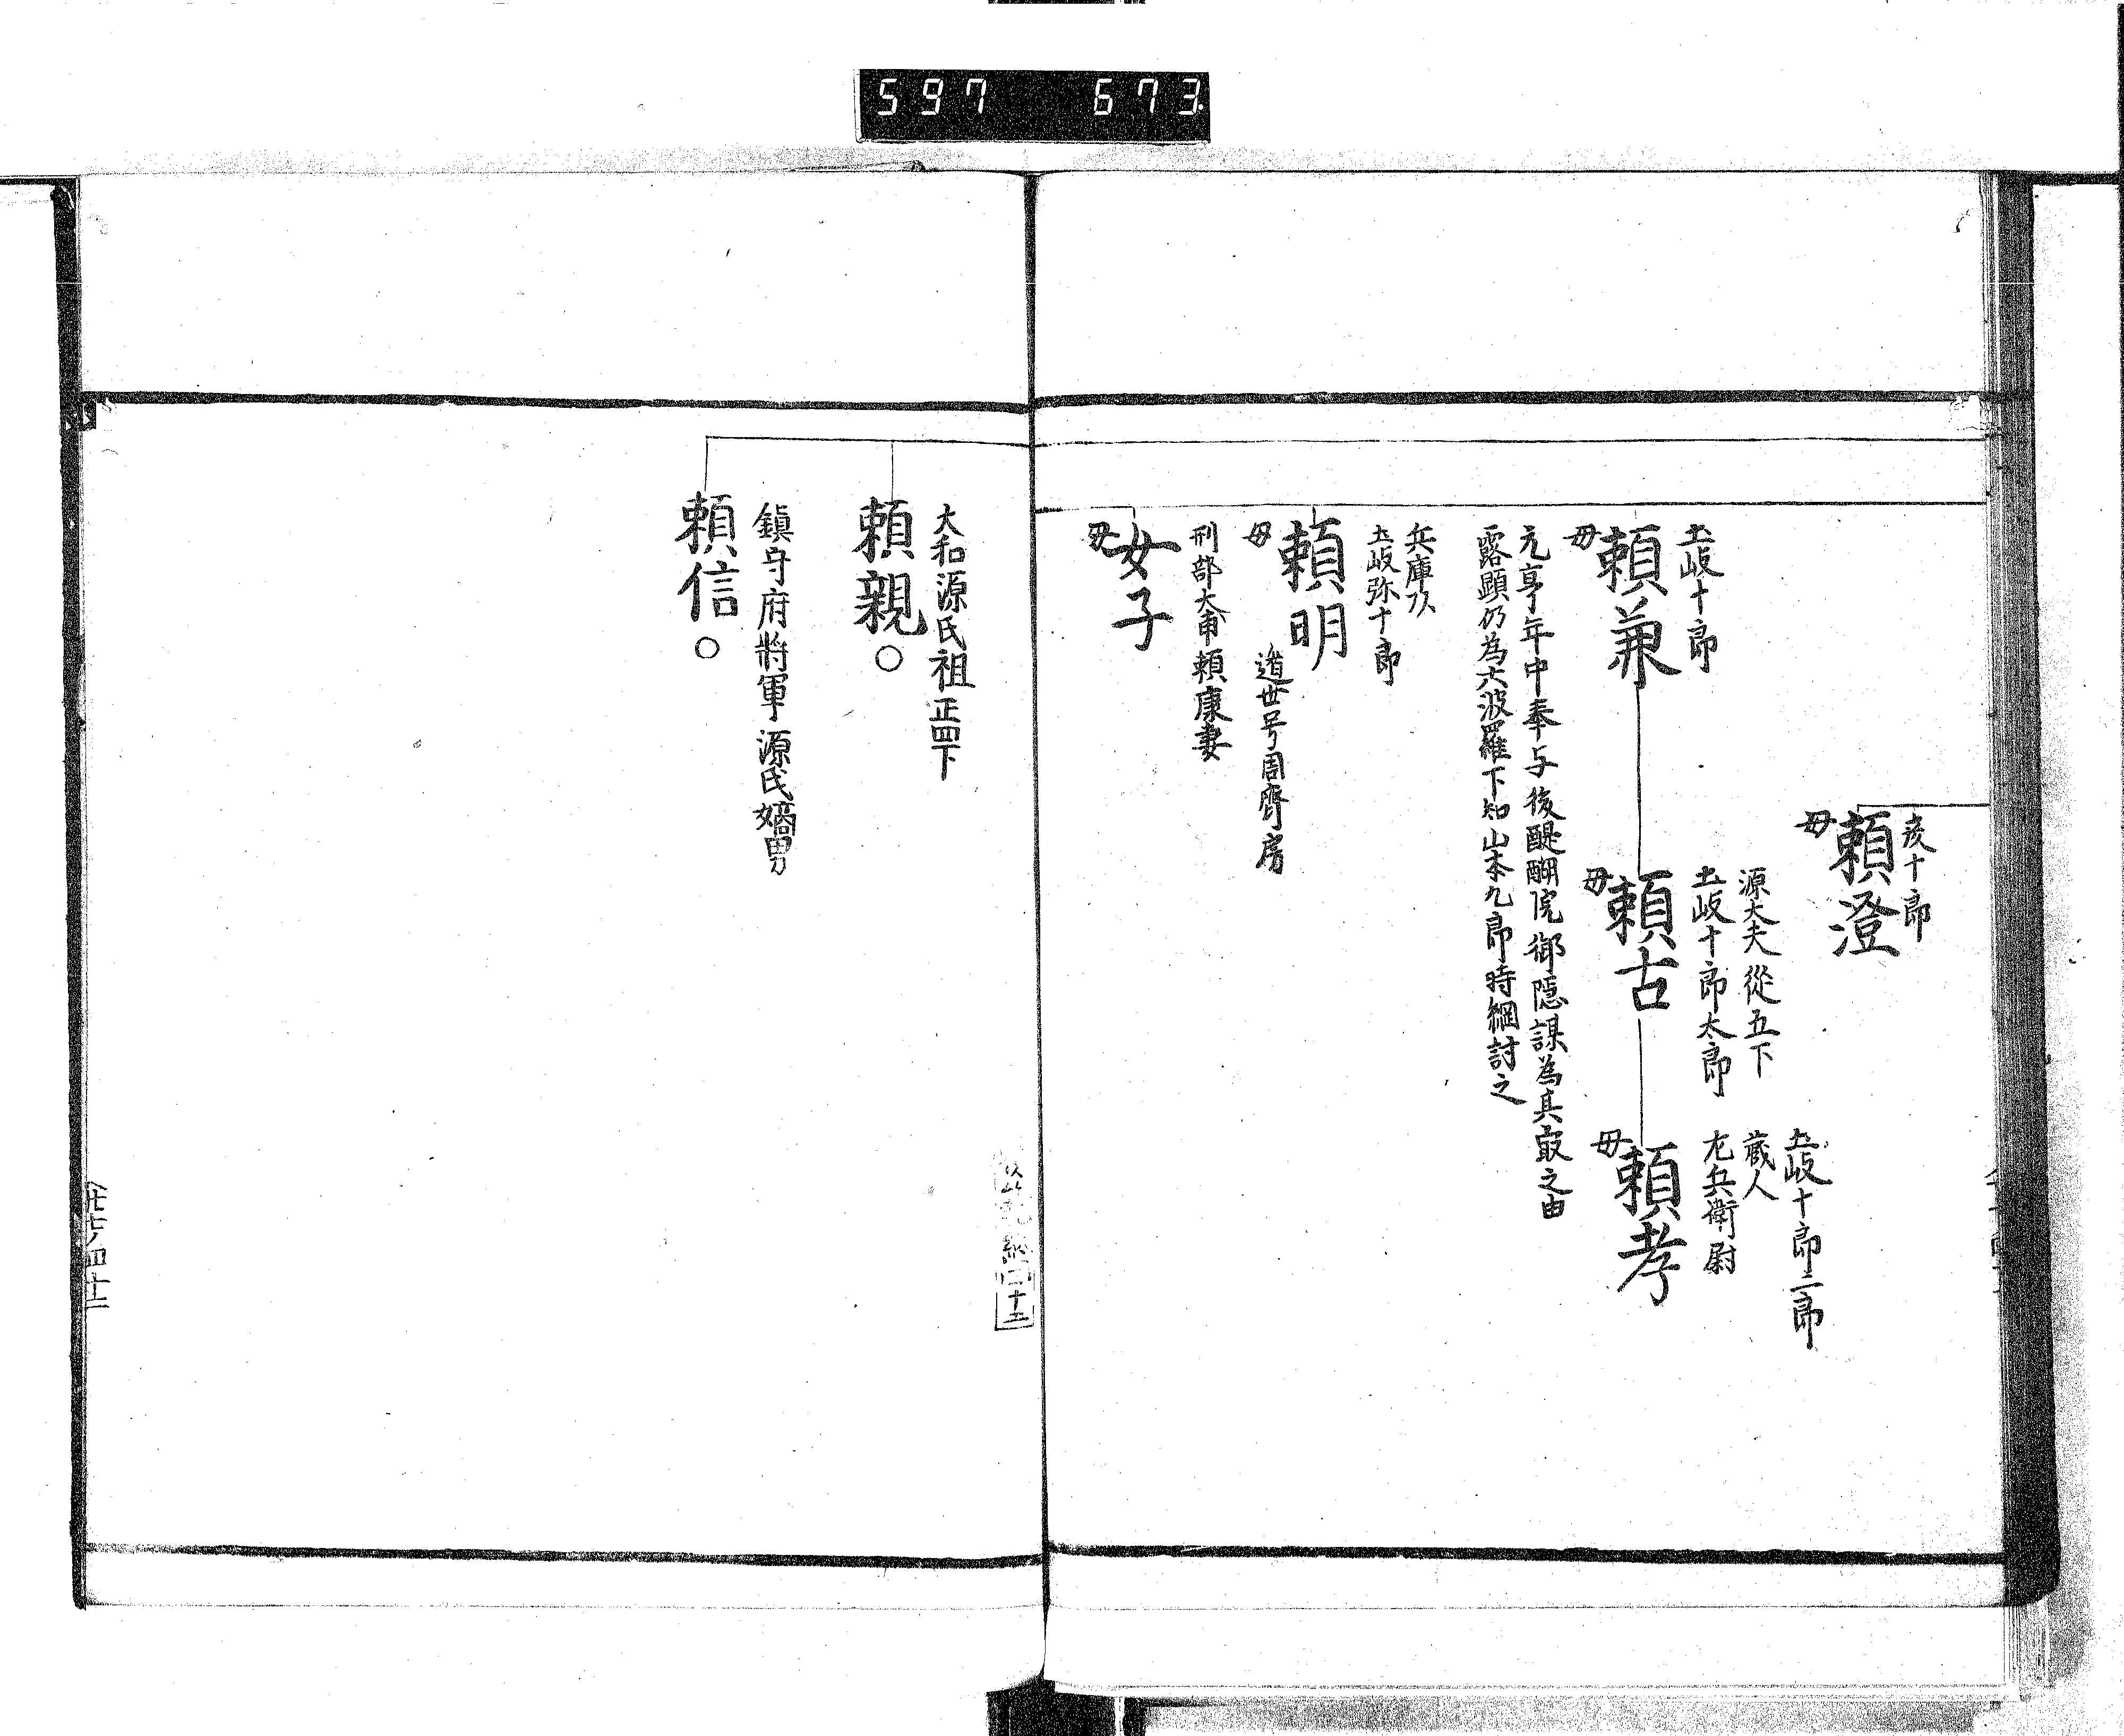 597 673
彦十郎
頼澄
母
土岐十郎二郎
蔵人
左兵衛尉
頼孝
母
源大夫 從五下
土岐十郎太郎
頼古
母
土岐十郎
頼兼
母
元亨年中奉与後醍醐院御隠謀為其宼之由
露顕仍為六波羅下知山本九郎時綱討之
兵庫从
土岐弥十郎
頼明
母
遁世号周齊房
刑部大甫頼康妻
女子
母
十二
大和源氏祖 正四下
頼親○
鎭守府將軍 源氏嫡男
頼信○